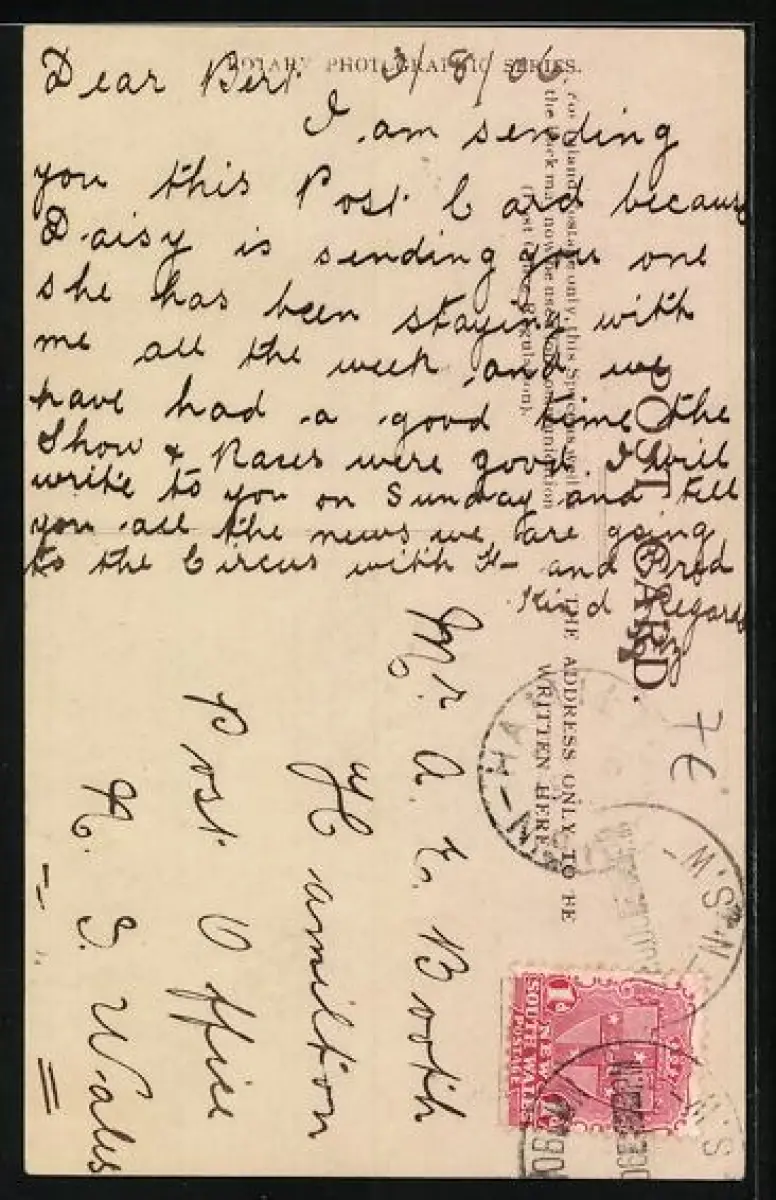 Dear Bert 3/8/06
I am sending
you this Post Card because
Daisy is sending you one
she has been staying with
me all the week and we
have had a good time the
Show & Races were good. I will
write to you on Sunday and tell
you all the news we are going
to the Circus with H- and Fred
Kind Regards
ROTARY PHOTOGRAPHIC SERIES.
POST CARD.
THE ADDRESS ONLY TO BE
WRITTEN HERE
Mr. A. E. Booth
Hamilton
Post Office
N. S. Wales
7E
N.S.W
1d NEW
SOUTH WALES
POSTAGE